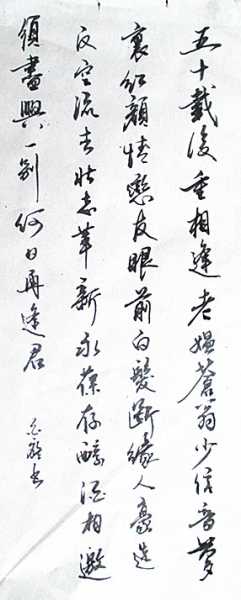 五十載後重相逢老媼蒼翁少信音夢
裏紅顏情戀友眼前白髮斷緣人豪造
反空流去壯志革新永葆存醇酒相邀
須盡興一別何日再逢君